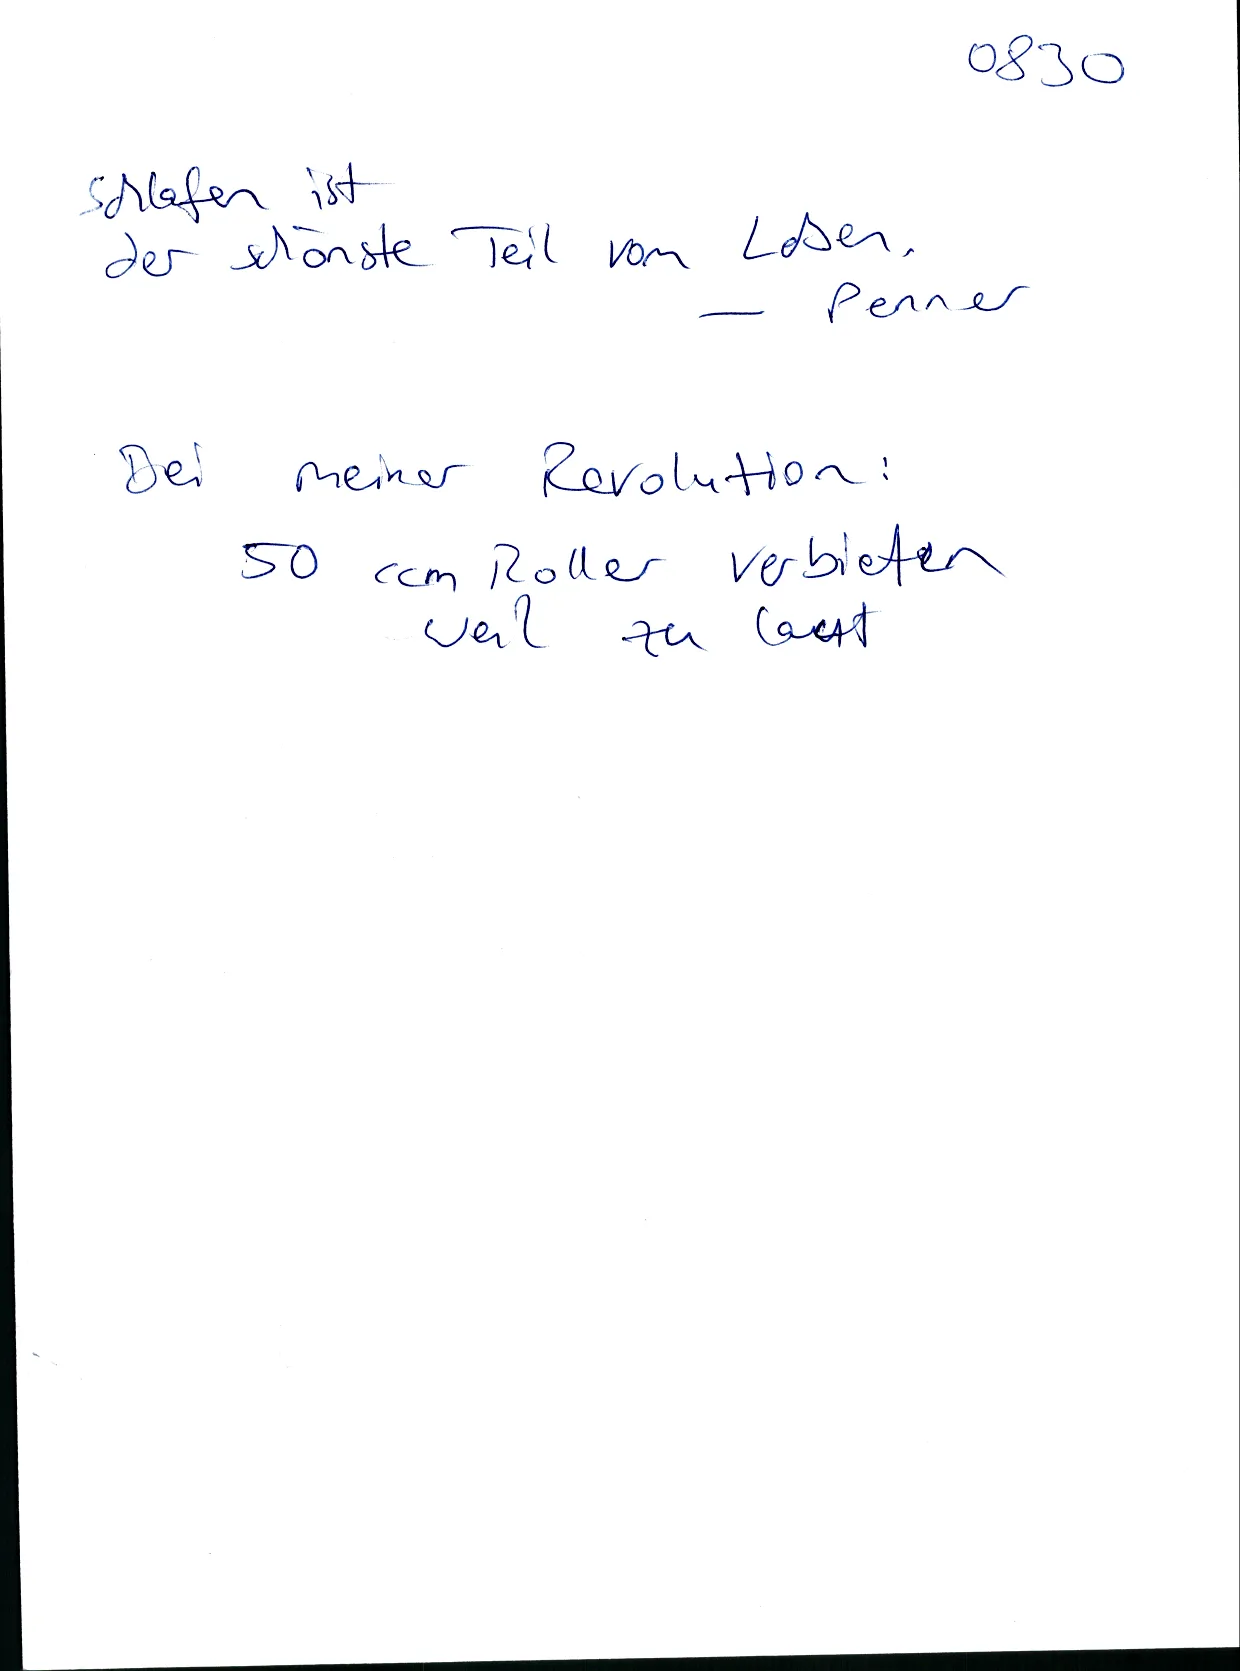 0830
Schlafen ist
der schönste Teil vom Leben.
— Penner
Bei meiner Revolution:
50 ccm Roller verbieten
weil zu laut